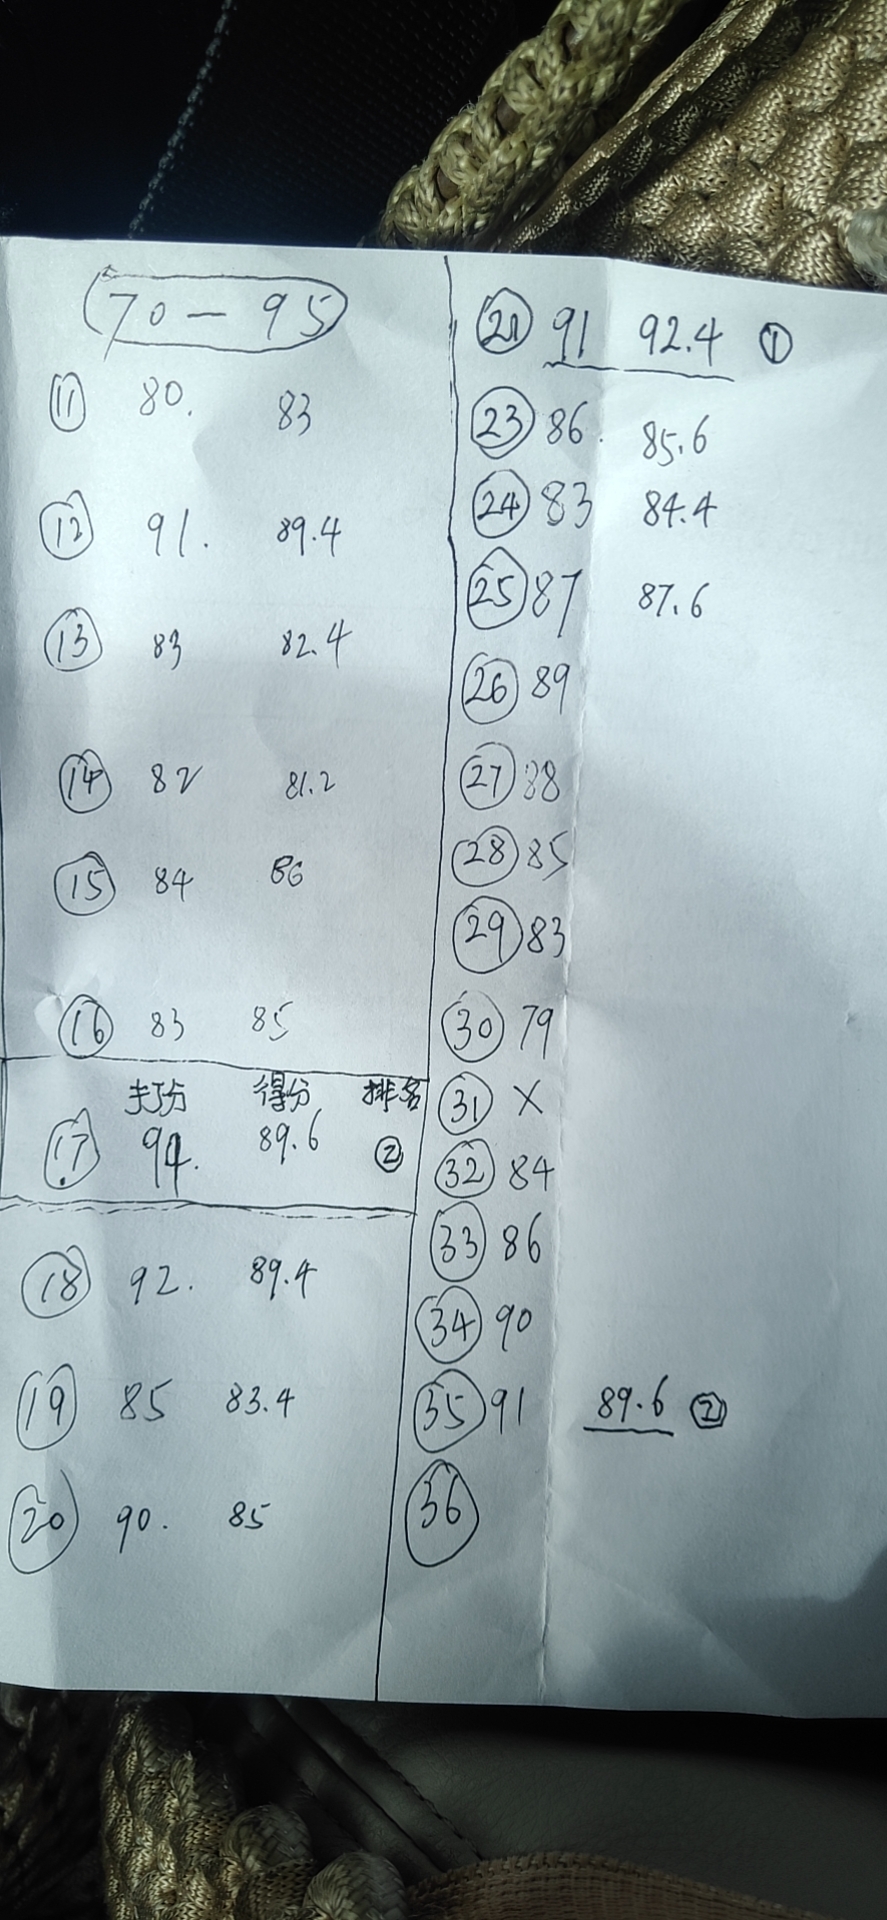 70 — 95
⑪ 80. 83
⑫ 91. 89.4
⑬ 83 82.4
⑭ 82 81.2
⑮ 84 86
⑯ 83 85
打分 得分 排名
⑰ 94. 89.6 ②
⑱ 92. 89.4
⑲ 85 83.4
⑳ 90. 85
91 92.4 ①
㉓ 86. 85.6
㉔ 83 84.4
㉕ 87 87.6
㉖ 89
㉗ 88
㉘ 85
㉙ 83
㉚ 79
㉛ X
㉜ 84
㉝ 86
㉞ 90
㉟ 91 89.6 ②
㊱